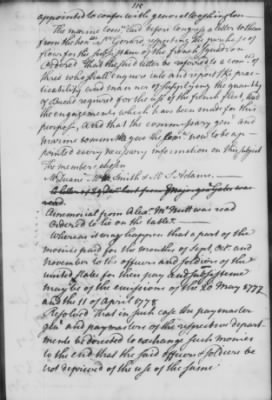 115
appointed to confer with general Washington
The marine comee laid before congress a letter to them
from the hon. M. Gerard respecting the purchase of
flour for the supplying of the french squadron
Ordered That the said letter be referred to a comee of
three who shall enquire into and report the prac-
ticability and manner of supplying the quantity
of flour required for the use of the french fleet and
the engagements which have been made for this
purpose, and that the commissary genl and
marine committee give the comee now to be ap-
pointed every necessary information on this subject
The members chosen
Mr Duane Mr M. Smith & Mr S. Adams.
A letter of from major gates was
read
A memorial from Alexr McNutt was read
Ordered to lie on the table.
Whereas it may happen that a part of the
monies paid for the months of Sept. Oct. and
november to the officers and soldiers of the
united states for their pay and subsistence
may be of the emissions of the 20 May 1777
and the 11 of April 1778
Resolved That in such case the paymaster
genl and paymasters of the respective depart-
ments be directed to exchange such monies
to the end that the said officers & soldiers be
not deprived of the use of the same